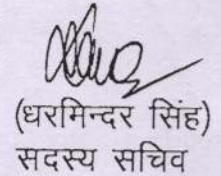 (धरमिन्दर सिंह)
सदस्य सचिव